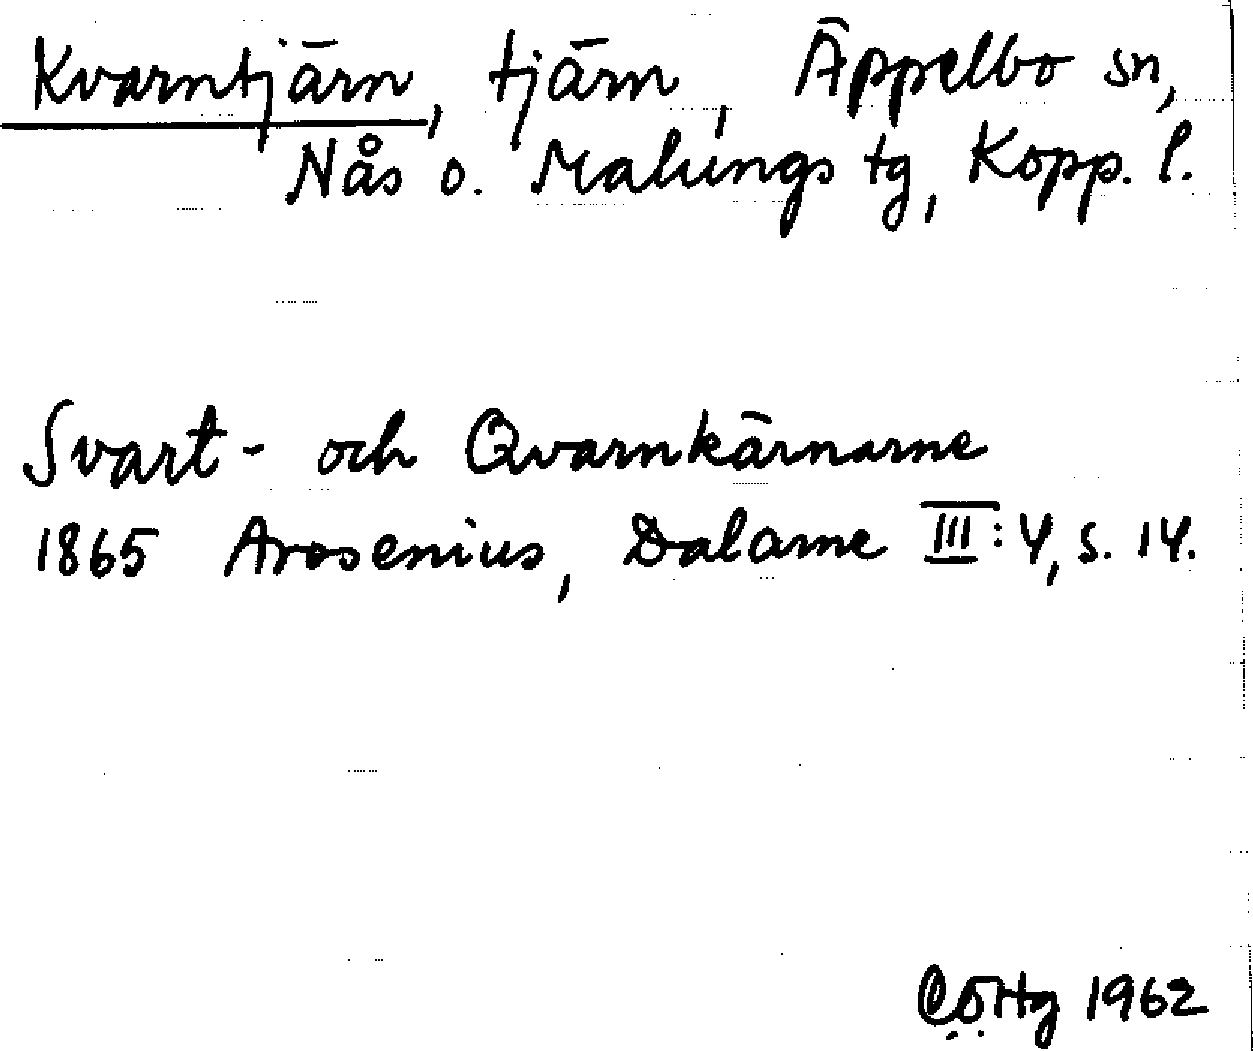 Kvarntjärn, tjärn, Äppelbo sn,
Nås o. Malungs tg, Kopp. l.
Svart- och Qvarnkärnarne
1865 Arosenius, Dalarne III: 4, s. 14.
1962